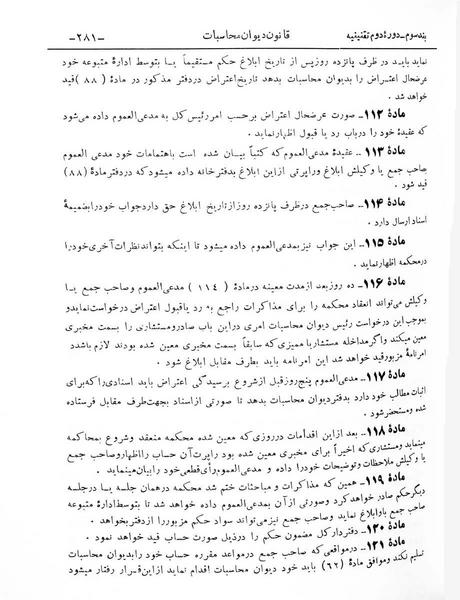 بند سوم ـ دورهٔ دوم تقنینیه قانون دیوان محاسبات ـ ۲۸۱ ـ
نماید باید در ظرف پانزده روز پس از تاریخ ابلاغ حکم مستقیماً یا بتوسط ادارهٔ متبوعه خود
عرضحال اعتراض را بدیوان محاسبات بدهد تاریخ اعتراض در دفتر مذکور در مادهٔ (۸۸) قید
خواهد شد .
مادهٔ ۱۱۲ـ صورت عرضحال اعتراض بر حسب امر رئیس کل به مدعی العموم داده می‌شود
که عقیدهٔ خود را در باب رد یا قبول اظهار نماید .
مادهٔ ۱۱۳ـ عقیدهٔ مدعی العموم که کتباً بیان شده است باهتمامات خود مدعی العموم
صاحب جمع یا وکیلش ابلاغ و راپرتی از این ابلاغ بدفتر خانه داده میشود که در دفتر مادهٔ (۸۸)
قید شود .
مادهٔ ۱۱۴ـ صاحب جمع در ظرف پانزده روز از تاریخ ابلاغ حق دارد جواب خود را بضمیمهٔ
اسناد ارسال دارد .
مادهٔ ۱۱۵ـ این جواب نیز بمدعی العموم داده میشود تا اینکه بتواند نظرات آخری خود را
در محکمه اظهار نماید .
مادهٔ ۱۱۶ـ ده روز بعد از مدت معینه در مادهٔ (۱۱۴) مدعی العموم و صاحب جمع یا
وکیلش می‌تواند انعقاد محکمه را برای مذاکرات راجع به رد یا قبول اعتراض درخواست نماید و
بموجب این درخواست رئیس دیوان محاسبات امری در این باب صادر و مستشاری را بسمت مخبری
معین میکند و اگر مداخله مستشار یا ممیزی که سابقاً بسمت مخبری معین شده بودند لازم باشد در
امرنامهٔ مزبور قید خواهد شد این امرنامه باید بطرف مقابل ابلاغ شود .
مادهٔ ۱۱۷ـ مدعی العموم پنج روز قبل از شروع برسیدگی اعتراض باید اسنادی را که برای
اثبات مطالب خود دارد بدفتر دیوان محاسبات بدهد تا صورتی از اسناد بجهت طرف مقابل فرستاده
شده و مستحضر شود .
مادهٔ ۱۱۸ـ بعد از این اقدامات در روزی که معین شده محکمه منعقد و شروع بمحاکمه
مینماید و مستشاری که اخیراً برای مخبری معین شده بود راپرت آن حساب را اظهار و صاحب جمع
یا وکیلش ملاحظات و توضیحات خود را داده و مدعی العموم رأی قطعی خود را بیان مینماید .
مادهٔ ۱۱۹ـ همین که مذاکرات و مباحثات ختم شد محکمه در همان جلسه یا در جلسه
دیگر حکم صادر خواهد کرد و صورتی از آن بمدعی العموم داده خواهد شد تا بتوسط ادارهٔ متبوعه
صاحب جمع باو ابلاغ نماید و صاحب جمع نیز می‌تواند سواد حکم مزبور را از دفتر بخواهد .
مادهٔ ۱۲۰ـ دفتردار کل مضمون حکم را در ذیل صورت حساب قید خواهد نمود .
مادهٔ ۱۲۱ـ در مواقعی که صاحب جمع در مواعد مقرره حساب خود را بدیوان محاسبات
تسلیم نکند و موافق مادهٔ (۶۲) باید خود دیوان محاسبات اقدام نماید از این قرار رفتار میشود